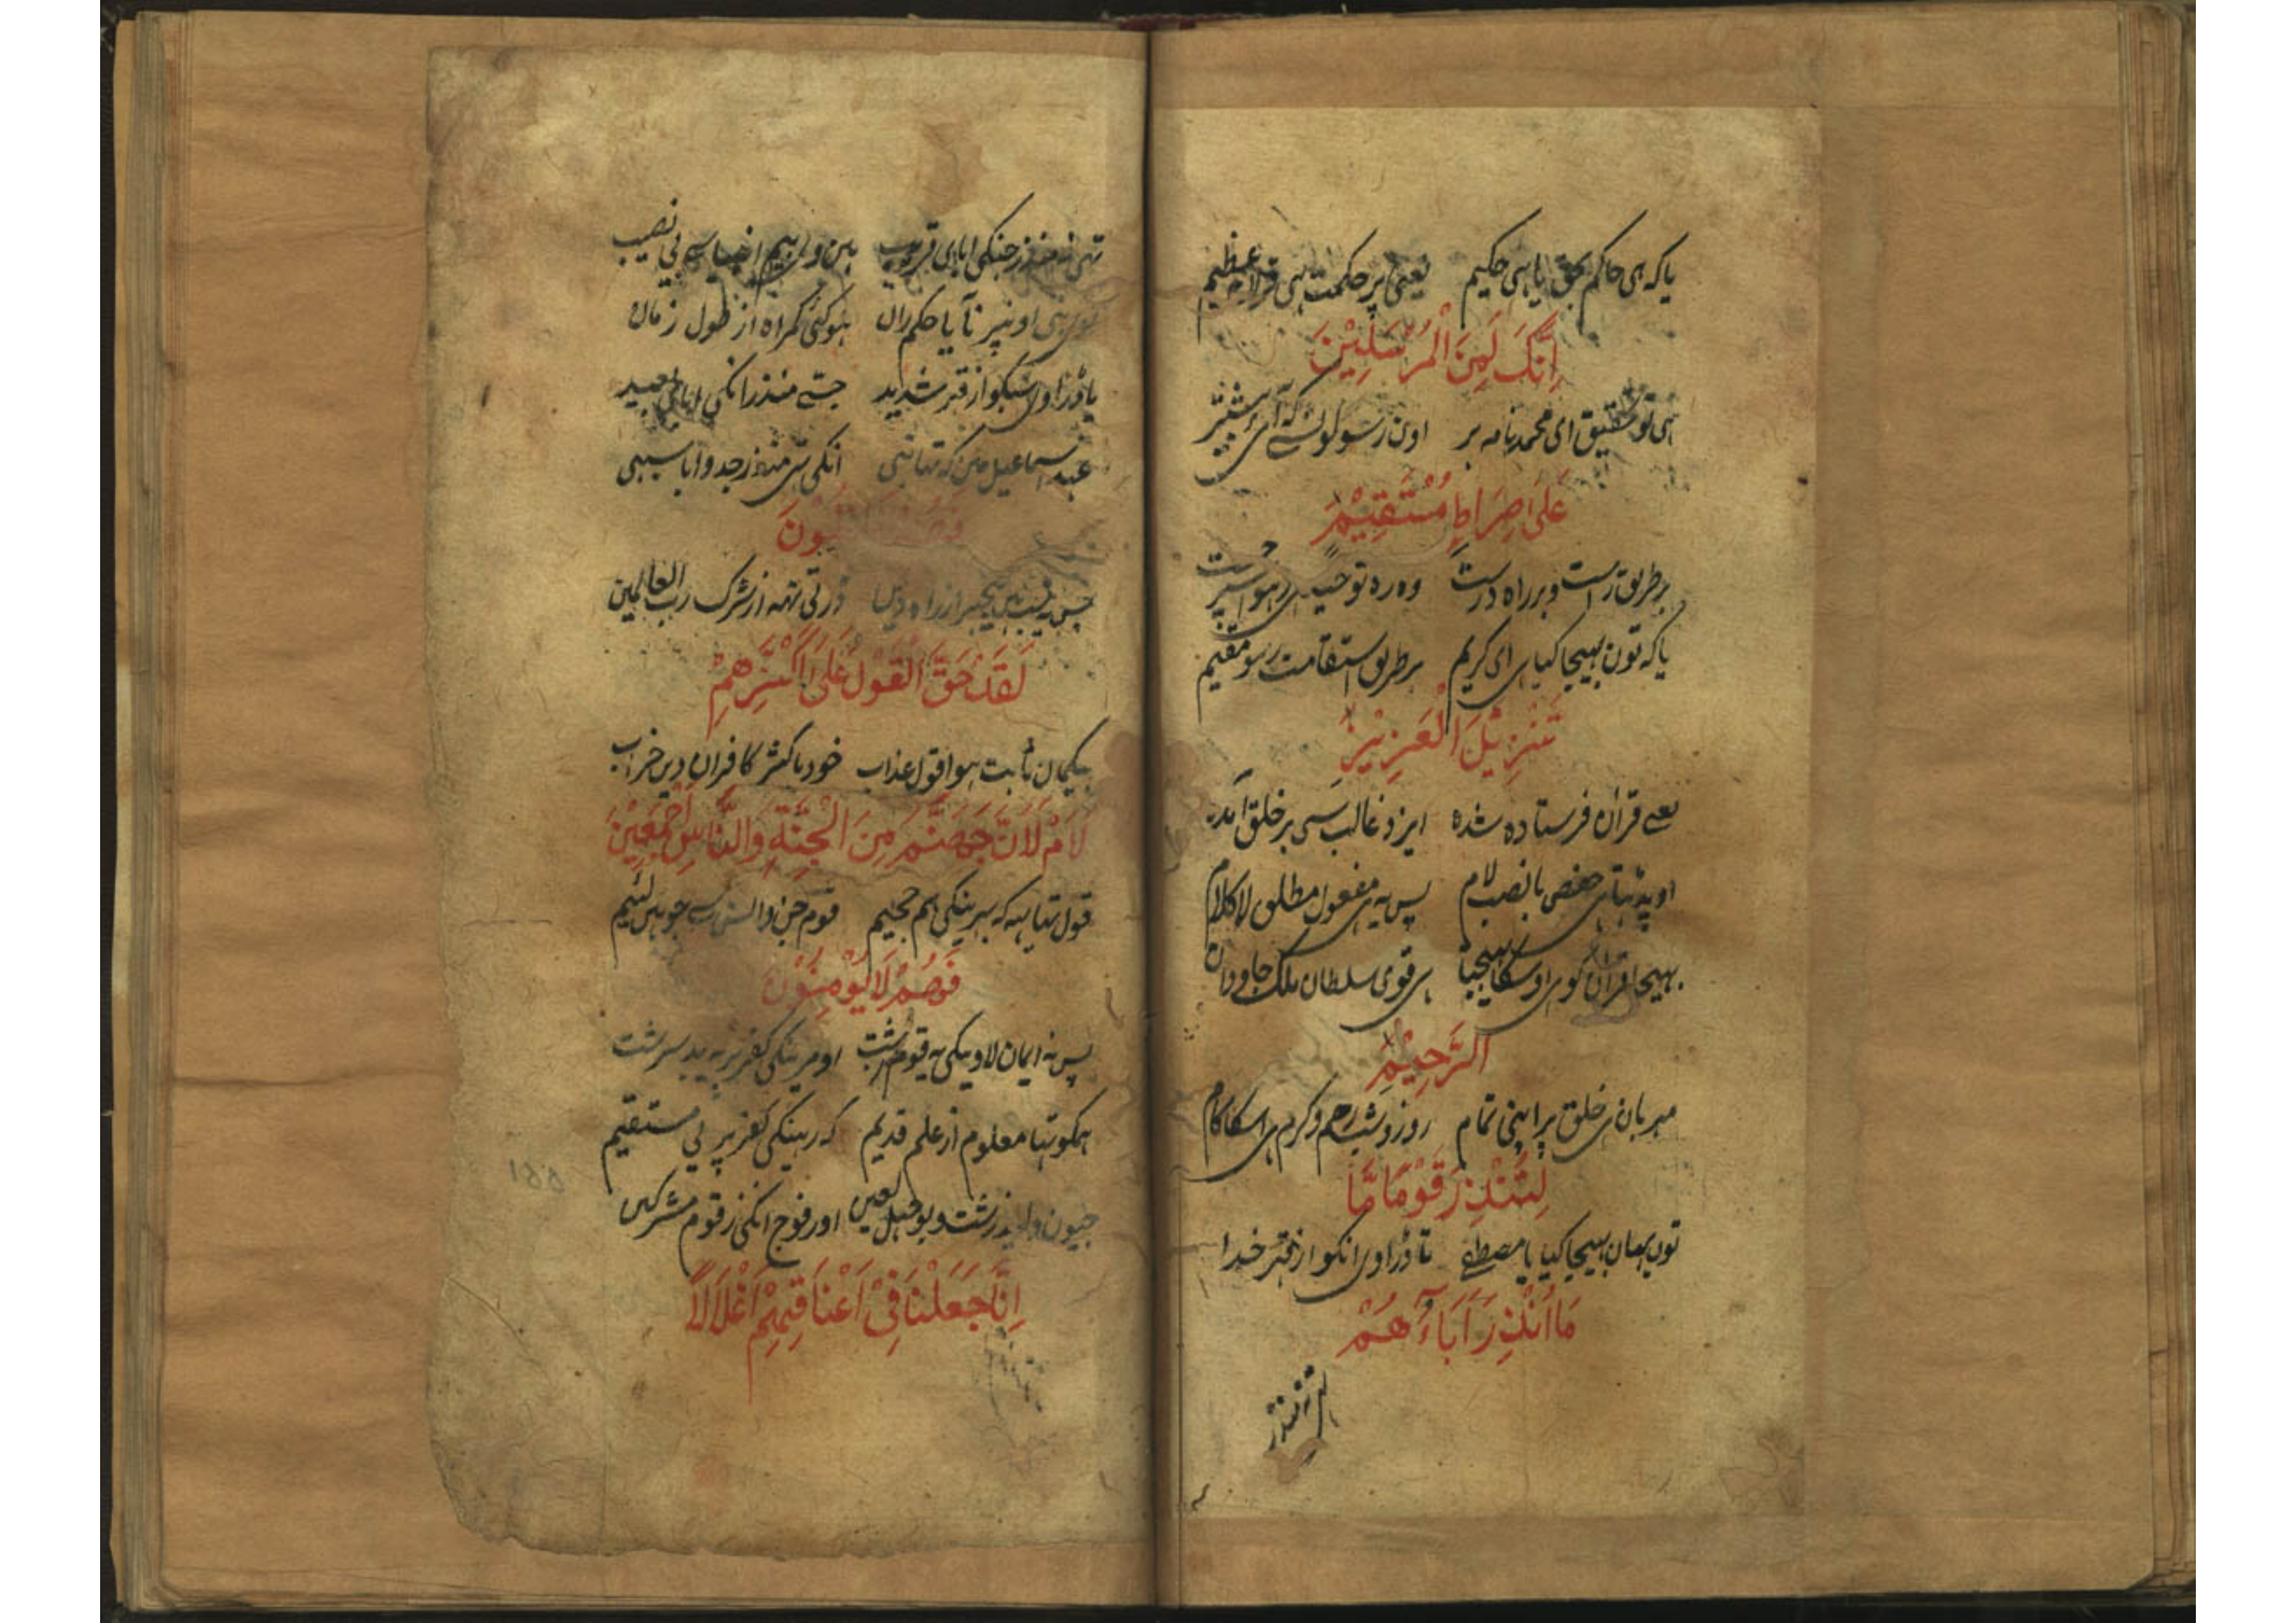 یا کہ ہی حاکم بحق یا ہی حکیم یعنی پر حکمت ہی قران عظیم
اِنَّكَ لَمِنَ الْمُرْسَلِيْنَ
ہی تو تحقیق ای محمد نامہ بر اون رسولون سے کہ آی پیشتر
عَلَى صِرَاطٍ مُسْتَقِيْمٍ
بر طریق راست و بر راہ درست وہ رہ توحید ہی رہو
یا کہ تون بہیجا کیا ہی ای کریم بر طریق استقامت رہو مقیم
تَنْزِيْلَ الْعَزِيْزِ
یعنے قران فرستادہ شدہ ایزد غالب سی بر خلق آمدہ
او پڑہتا ہی حفص با نصب لام پس یہ ہی مفعول مطلق لا کلام
بہیجا قران کوی اوسکا بہیجنا ہی قوی سلطان ملک جاودان
الرَّحِيْمِ
مہربان ہی خلق پر اپنی تمام روز و شب رحم و کرم ہی اسکا کام
لِتُنْذِرَ قَوْمًا مَّا
تون یہان بہیجا کیا یا مصطفے تا ڈراوی انکو از قہر خدا
مَا اُنْذِرَ اٰبَاءُهُمْ
تہی نہ منذر جنکی ابای قریب ہین و لی بیم سے بی نصیب
اونپر نآیا حکم ران ہو کئی کمراہ از طول زمان
یا ڈراوی سبکو از قہر شدید جسے منذر انکی ابای بعید
عہد اسماعیل مین کہ تہا نبی انکی تہی منذر جد و ابا سبہی
جس سبب ہین بیخبر از راہ دین ڈرتی نہ از شرک رب العالمین
لَقَدْ حَقَّ الْقَوْلُ عَلَى اَكْثَرِهِمْ
بیکمان ثابت ہوا قول عذاب خود با کثر کافران دین خراب
لَاَمْلَاَنَّ جَهَنَّمَ مِنَ الْجِنَّةِ وَالنَّاسِ اَجْمَعِيْنَ
قول تہا یہ کہ بہرینکی ہم جحیم قوم جن و انس سے جو ہین لئیم
فَهُمْ لَا يُؤْمِنُوْنَ
پس نہ ایمان لاوینکی یہ قوم زشت اور مرینکی کفر پر یہ بد سرشت
ہمکو تہا معلوم از علم قدیم کہ رہینکی کفر پر بی مستقیم
جیون ولید زشت و بوجہل لعین اور فوج انکی ز قوم مشرکین
اِنَّا جَعَلْنَا فِىْ اَعْنَاقِهِمْ اَغْلَالًا